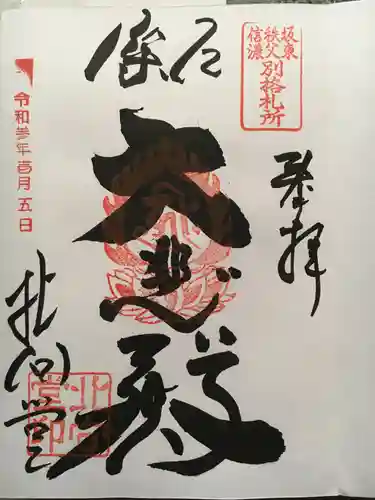 坂東
秩父
信濃
別格札所
奉拝
厄除
大悲殿
令和参年
月五日
北向堂
北向
堂印